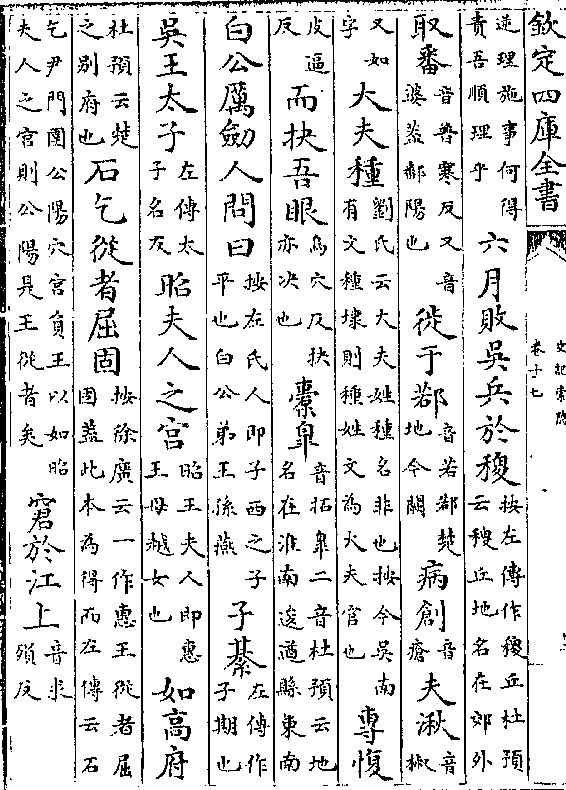 欽定四庫全書
史記索隱
卷十七
逆理施事何得責吾順理乎 六月敗吳兵於稷 按左傳作稷丘杜預云稷丘地名在郊外
取番 音普寒反又音婆蓋鄱陽也 徙于鄀 音若鄀楚地今闕 病創 音瘡 夫湫 音椒
又如字 大夫種 劉氏云大夫姓種名非也按今吳南有文種埭則種姓文為大夫官也 專愎
皮逼反 而抉吾眼 烏穴反抉亦决也 橐臯 音拓臯二音杜預云地名在淮南逡遒縣東南
白公厲劒人問曰 按左氏人即子西之子平也白公弟王孫燕 子綦 左傳作子期也
吳王太子 左傳太子名友 昭夫人之宫 昭王夫人即惠王母越女也 如高府
杜預云楚之别府也 石乞從者屈固 按徐廣云一作惠王從者屈固蓋此本為得而左傳云石
乞尹門圉公陽穴宫負王以如昭夫人之官則公陽是王從者矣 窘於江上 音求殞反